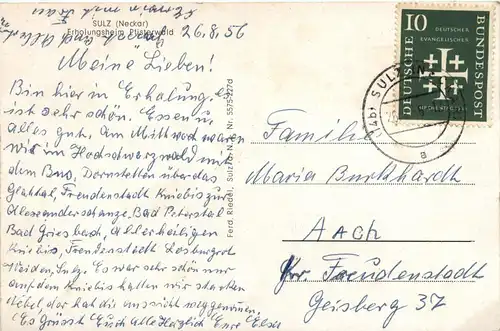 SULZ (Neckar)
Erholungsheim Plisterwald
26.8.56
Meine Lieben!
Bin hier in Erholung, es
ist sehr schön. Essen u.
alles gut. Am Mittwoch waren
wir im Hochschwarzwald mit
dem Bus, Dornstetten über das
Glattal, Freudenstadt Kniebis zur
Alexanderschanze, Bad Peterstal
Bad Griesbach, Allerheiligen
Kniebis, Freudenstadt Lossburg
Sulz. Es war sehr schön nur
auf dem Kniebis hatten wir starken
Nebel, der hat die Aussicht weggenommen.
Es Grüsst Euch Alle Herzlich Eure
Ferd. Riedel, Sulz a. N. Nr. 5575-727d
Familie
Maria Burkhardt
Aach
Kr. Freudenstadt
Geisberg 37
10
DEUTSCHER
EVANGELISCHER
KIRCHENTAG
DEUTSCHE
BUNDESPOST
(14b) SULZ
a